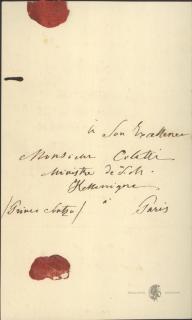 à Son Excellence
Monsieur Coletti
Ministre de S. M.
Hellénique
à
Paris